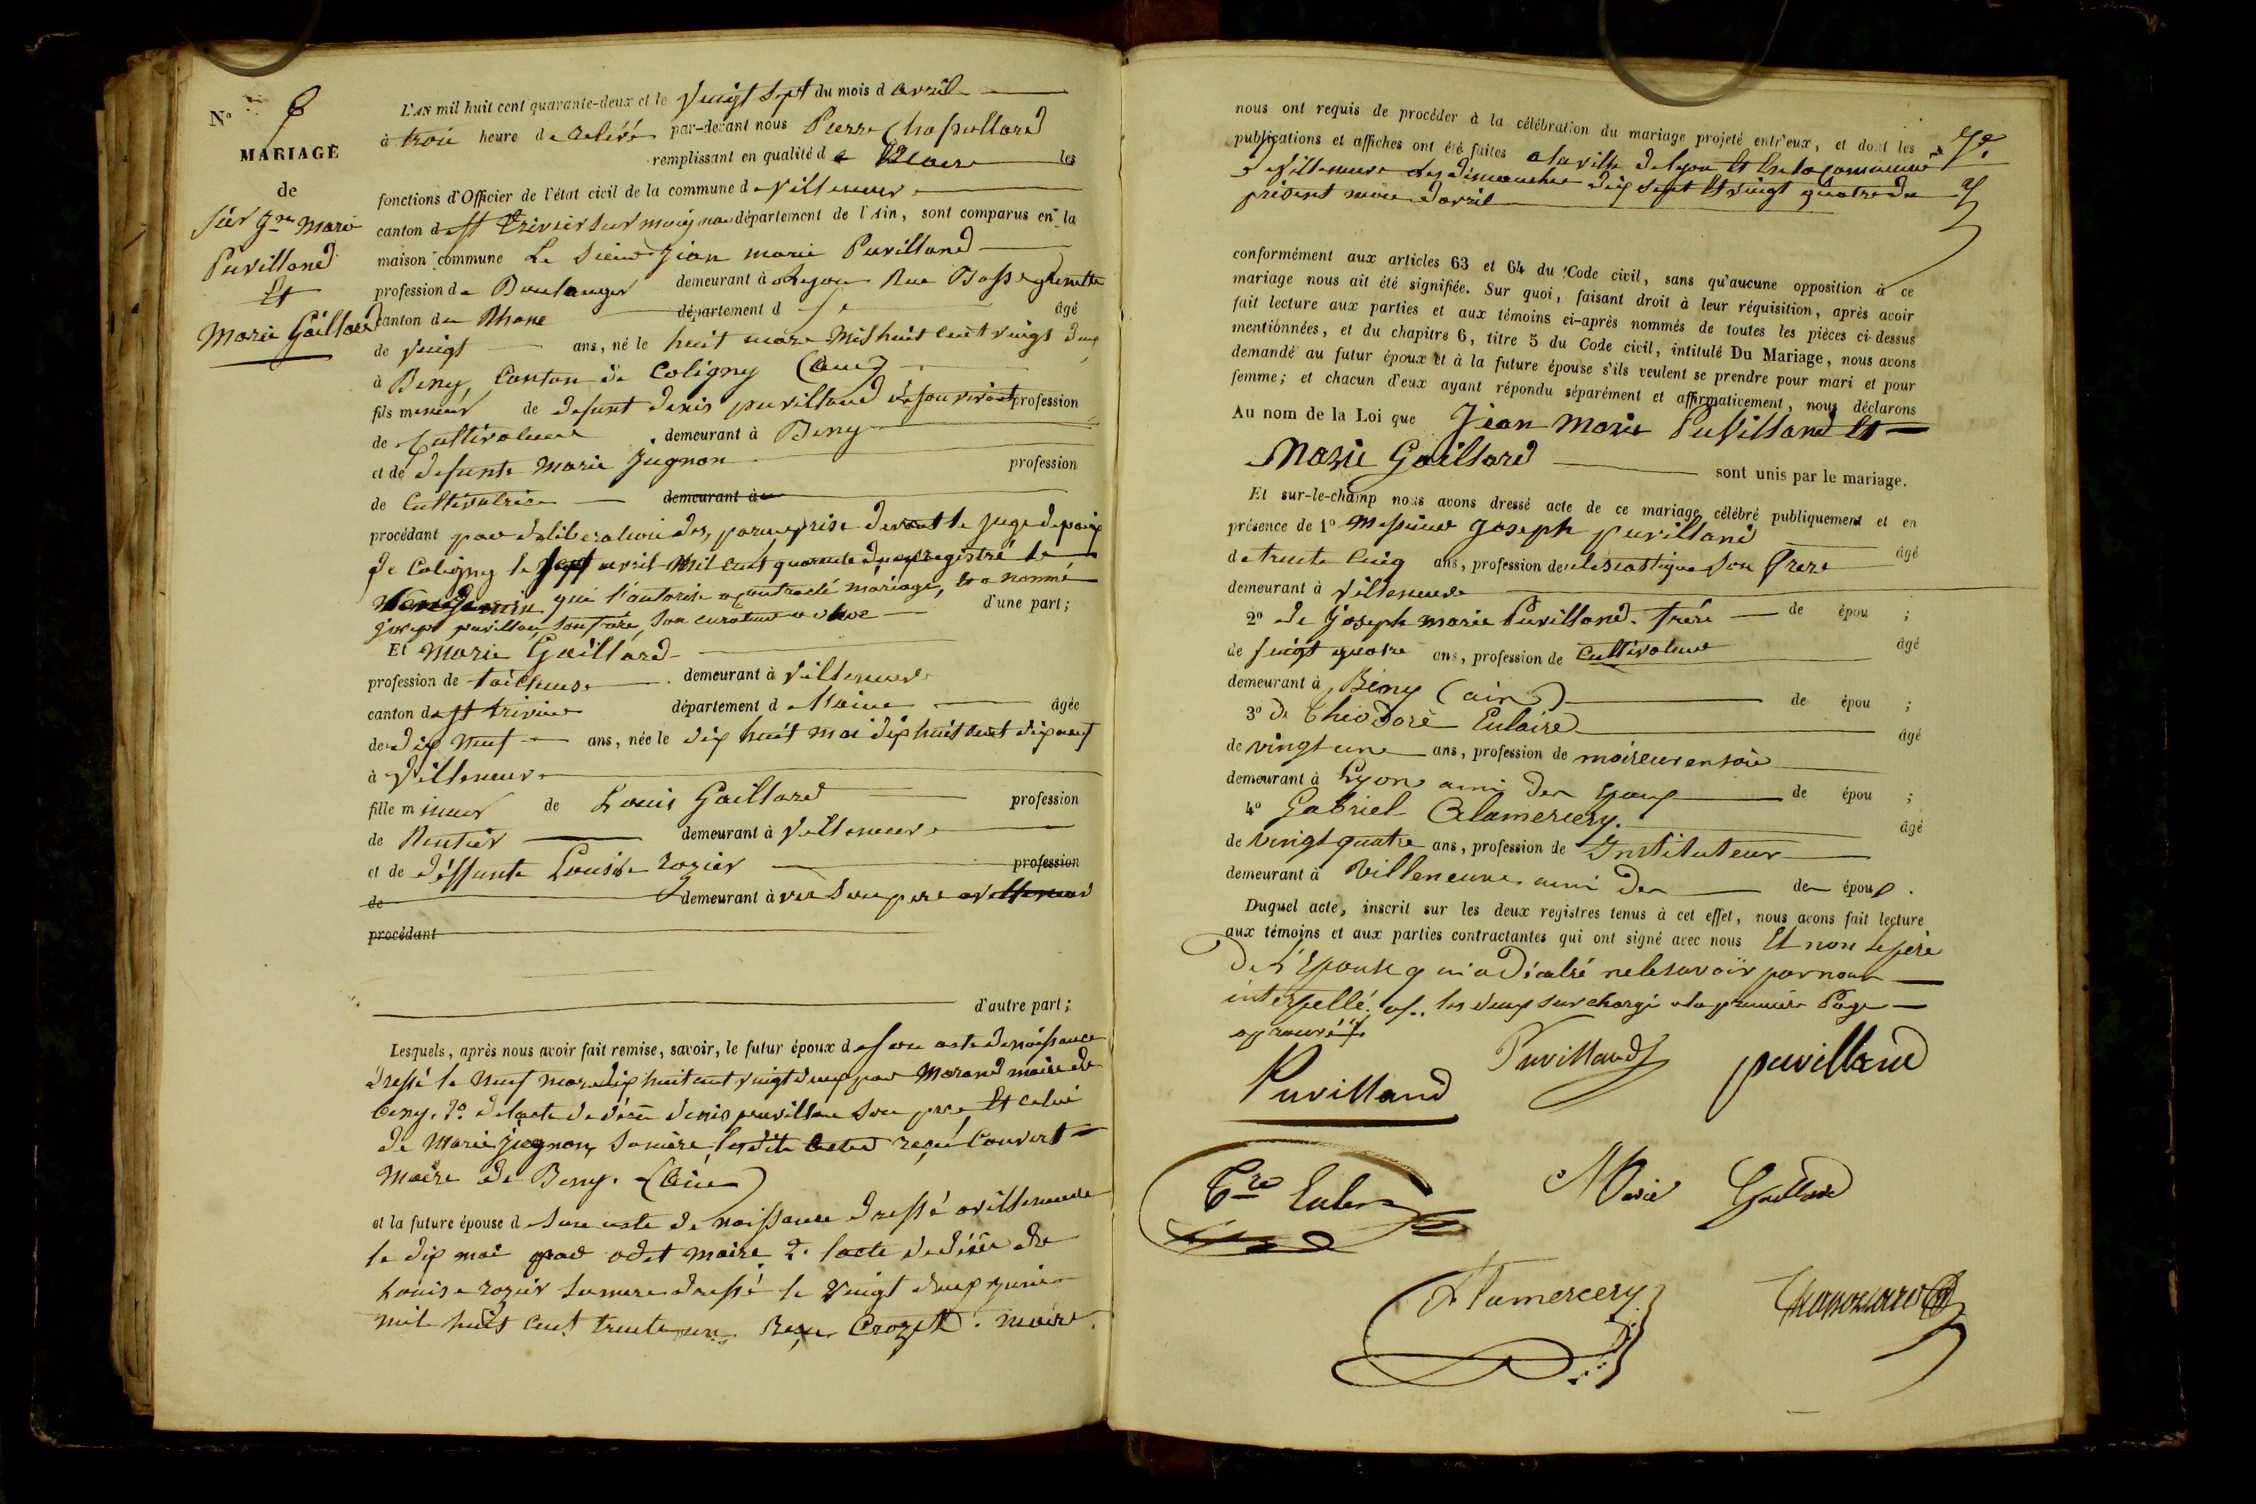 N° 6
MARIAGE
de
Sieur Jn Marie
Puvilland
Et
Marie Gaillard
L'AN mil huit cent quarante-deux et le vingt sept du mois d avril
à trois heure de relevé par-devant nous Pierre Chapollard
remplissant en qualité de Maire les
fonctions d'Officier de l'état civil de la commune de villeneuve
canton de St Trivier sur moignan département de l'Ain, sont comparus en la
maison commune Le Sieur Jean marie Puvilland
profession de Boulanger demeurant à Lyon Rue Basse grenette
canton du Rhone département d âgé
de vingt ans, né le huit mars mil huit cent vingt deux
à Beny, Canton de Coligny (ain)
fils mineur de defunt denis puvilland profession
de Cultivateur demeurant à Beny
et de defunte Marie Jugnon profession
de Cultivatrice demeurant à
procédant par deliberation des parens prise devant le juge de paix
de Coligny le sept avril mil cent quarante deux registré le
qui l'autorise a contracté mariage, et a nommé
joseph puvilland son frère, son curateur d'une part;
Et Marie Gaillard
profession de tailleuse demeurant à Villeneuve
canton de St trivier département de l'ain âgée
de dix neuf ans, née le dix huit mai dix huit cent dix neuf
à Villeneuve
fille mineur de Louis Gaillard profession
de Rentier demeurant à Villeneuve
et de déffunte Louise rozier profession
de demeurant à son père a villeneuve
procédant
d'autre part;
Lesquels, après nous avoir fait remise, savoir, le futur époux de son acte de naissance
dressé le neuf mars dix huit cent vingt deux par Morand maire de
beny. 2° de l'acte de décès denis puvilland son père Et celui
de Marie jugnon, sa mère, lesdits actes reçu Convert
Maire de Beny. (Ain)
et la future épouse de son acte de naissance dressé a villeneuve
le dix mai par odet maire 2° l'acte de décès de
Louise rozier sa mere dressé le vingt deux
mil huit cent trente un Crozet maire.
nous ont requis de procéder à la célébration du mariage projeté entr'eux, et dont les
publications et affiches ont été faites a la ville de Lyon Et En la commune
de villeneuve les dimanche dix sept Et vingt quatre du
présent mois d'avril
conformément aux articles 63 et 64 du Code civil, sans qu'aucune opposition à ce
mariage nous ait été signifiée. Sur quoi, faisant droit à leur réquisition, après avoir
fait lecture aux parties et aux témoins ci-après nommés de toutes les pièces ci-dessus
mentionnées, et du chapitre 6, titre 5 du Code civil, intitulé Du Mariage, nous avons
demandé au futur époux et à la future épouse s'ils veulent se prendre pour mari et pour
femme; et chacun d'eux ayant répondu séparément et affirmativement, nous déclarons
Au nom de la Loi que Jean Marie Puvilland Et
Marie Gaillard sont unis par le mariage.
Et sur-le-champ nous avons dressé acte de ce mariage célébré publiquement et en
présence de 1° Messieur joseph puvilland âgé
de trente cinq ans, profession de son frere
demeurant à villeneuve de épou ;
2° de joseph marie Puvilland. frère âgé
de vingt quatre ans, profession de Cultivateur
demeurant à Beny (ain) de épou ;
3° de Théodore Eulaire âgé
de vingt une ans, profession de moireur en soie
demeurant à Lyon ami des Epoux de épou ;
4° Gabriel Alamercery. âgé
de vingt quatre ans, profession de Instituteur
demeurant à Villeneuve ami des de époux.
Duquel acte, inscrit sur les deux registres tenus à cet effet, nous avons fait lecture
aux témoins et aux parties contractantes qui ont signé avec nous Et non le père
de l'Epouse qui a déclaré ne le savoir par nous
interpellé. les deux surchargé a la premiere Page
aprouvé
Puvilland Puvilland puvilland
Marie Gaillard
Alamercery